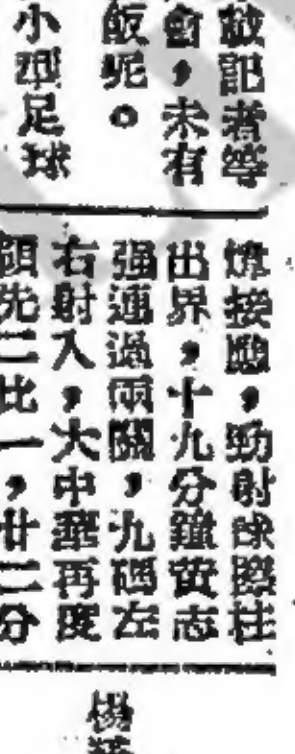 敝記者等
會，未有
飯呢。
小型足球
接應，勁射球際柱
出界，十九分鐘黃志
强連過兩關，九碼左
右射入，大中華再度
領先二比一，廿二分
楊